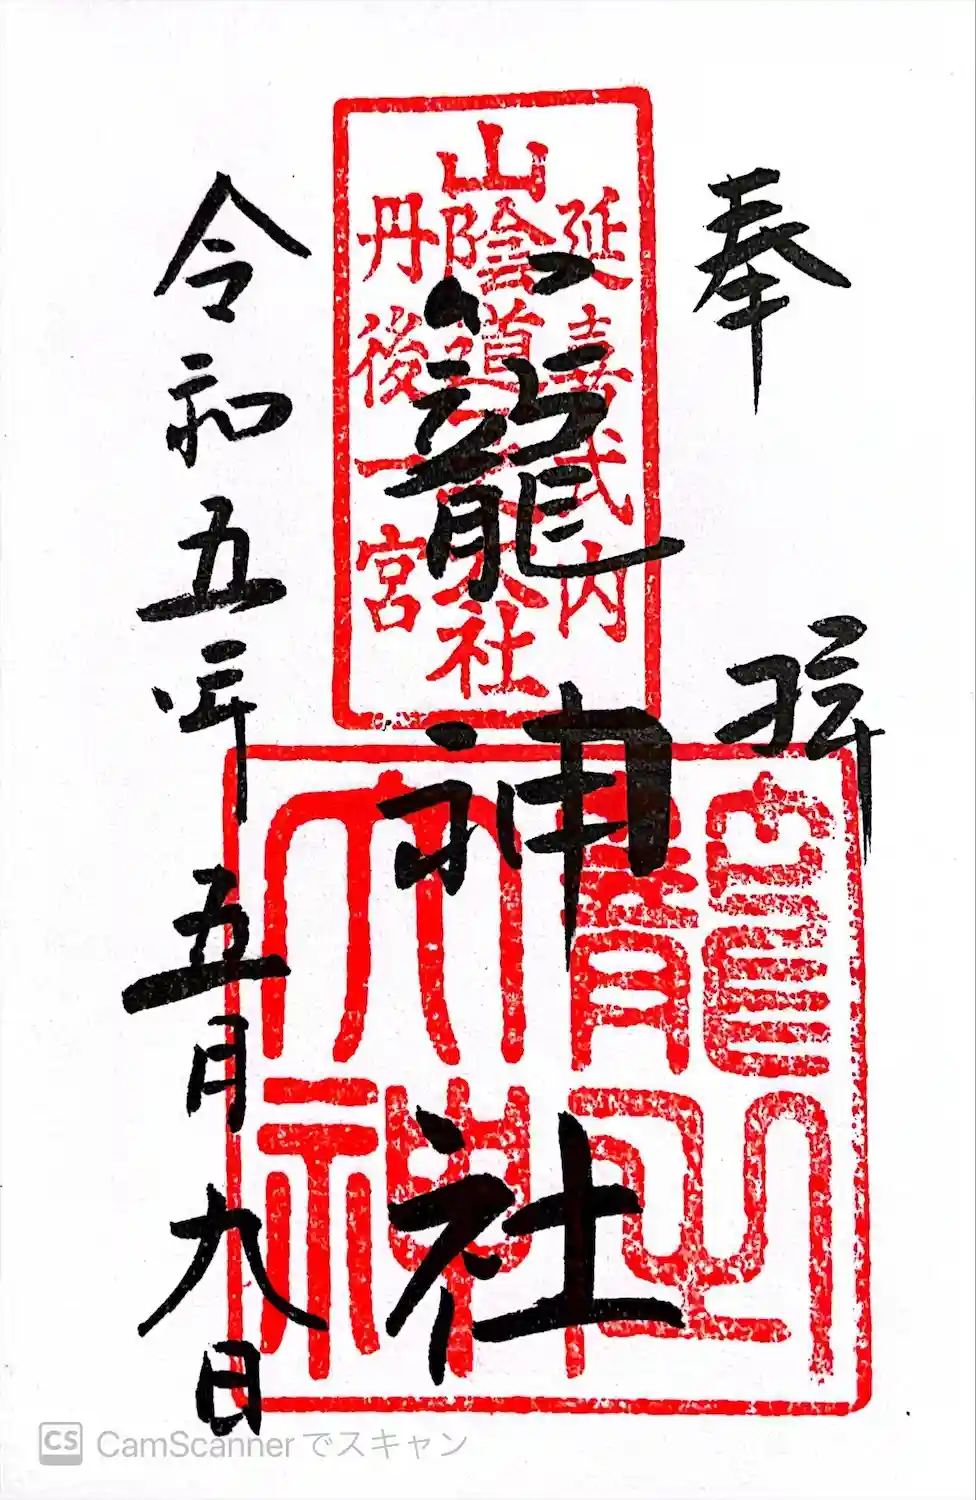 奉拝
延喜式内
山陰道大社
丹後一宮
籠神社
籠之
大神
令和五年五月九日
CS CamScannerでスキャン